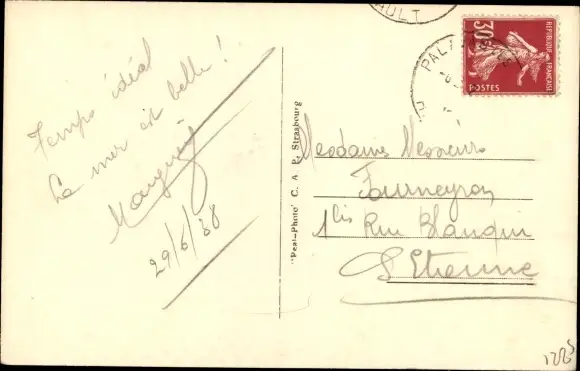 Temps idéal
La mer est belle !
29/6/38
"Real-Photo" C. A. P. Strasbourg
AULT
PALA
30c
REPUBLIQUE FRANÇAISE
POSTES
Mesdames Messieurs
Fourneyron
1bis Rue Blanqui
St Etienne